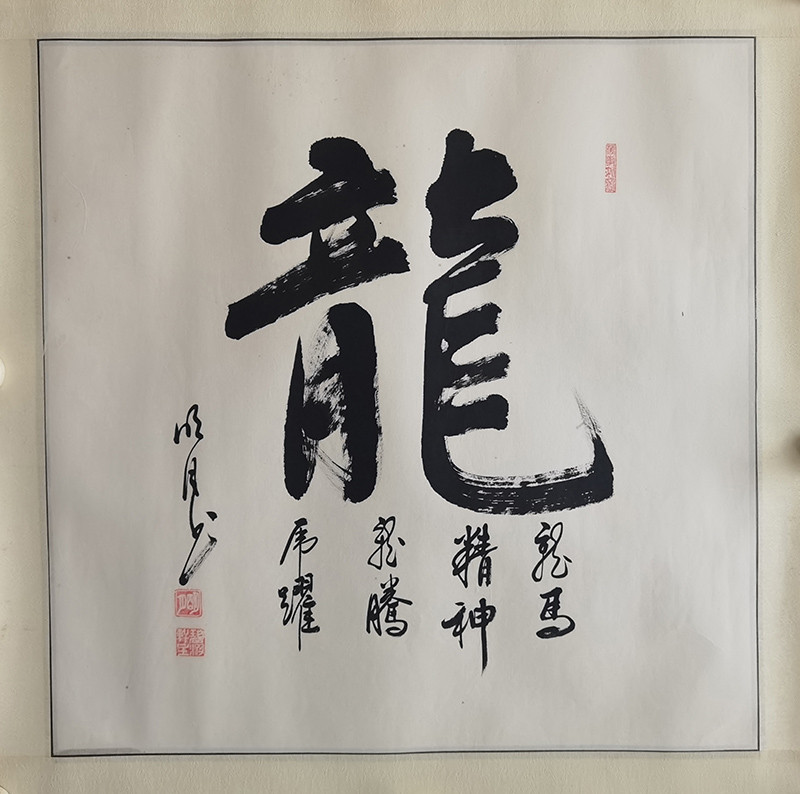 龍
龍馬
精神
龍騰
虎躍
明月书